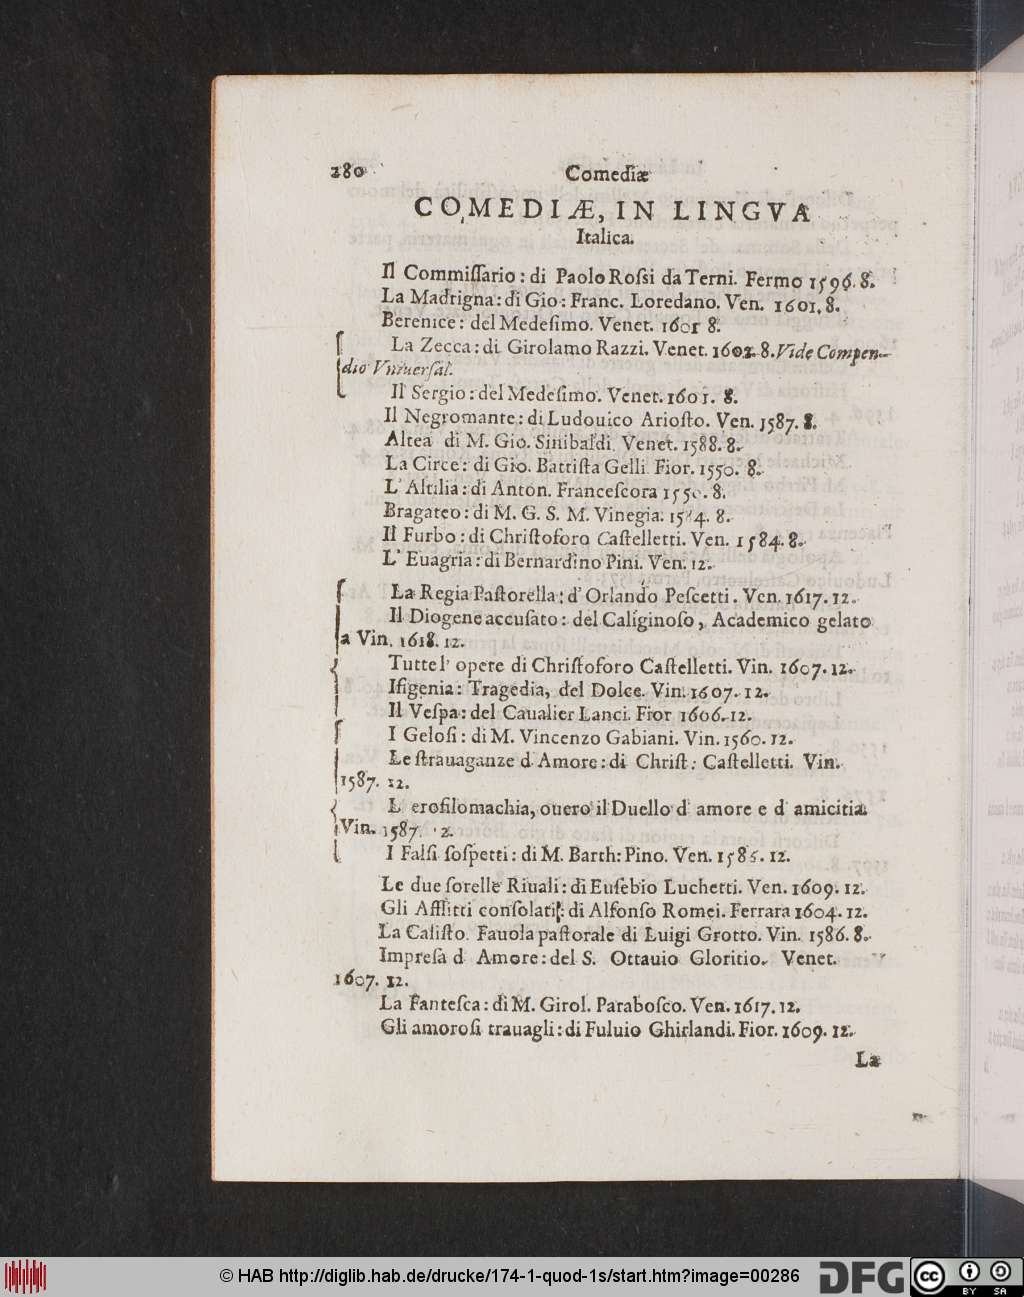 280 Comediæ
COMEDIÆ, IN LINGVA
Italica.
Il Commiſſario: di Paolo Roſsi da Terni. Fermo 1596. 8.
La Madrigna: di Gio: Franc. Loredano. Ven. 1601. 8.
Berenice: del Medeſimo. Venet. 1601 8.
La Zecca: di Girolamo Razzi. Venet. 1602. 8. Vide Compen-
dio Vniuerſal.
Il Sergio: del Medeſimo. Venet. 1601. 8.
Il Negromante: di Ludouico Arioſto. Ven. 1587. 8.
Altea di M. Gio. Sinibaldi. Venet. 1588. 8.
La Circe: di Gio. Battiſta Gelli. Fior. 1550. 8.
L' Altilia: di Anton. Franceſcora 1550. 8.
Bragateo: di M. G. S. M. Vinegia. 8.
Il Furbo: di Chriſtoforo Caſtelletti. Ven. 1584. 8.
L' Euagria: di Bernardino Pini. Ven. 12.
La Regia Paſtorella: d' Orlando Peſcetti. Ven. 1617. 12.
Il Diogene accuſato: del Caliginoſo, Academico gelato
a Vin. 1618. 12.
Tutte l' opere di Chriſtoforo Caſtelletti. Vin. 1607. 12.
Ifigenia: Tragedia, del Dolce. Vin. 1607. 12.
Il Veſpa: del Caualier Lanci. Fior 1606. 12.
I Geloſi: di M. Vincenzo Gabiani. Vin. 1560. 12.
Le ſtrauaganze d Amore: di Chriſt: Caſtelletti. Vin.
1587. 12.
L' erofilomachia, ouero il Duello d' amore e d' amicitia
Vin. 1587. 12.
I Falſi ſoſpetti: di M. Barth: Pino. Ven. 12.
Le due ſorelle Riuali: di Euſebio Luchetti. Ven. 1609. 12.
Gli Afflitti conſolati: di Alfonſo Romei. Ferrara 1604. 12.
La Caliſto. Fauola paſtorale di Luigi Grotto. Vin. 1586. 8.
Impreſa d Amore: del S. Ottauio Gloritio. Venet.
1607. 12.
La Fanteſca: di M. Girol. Paraboſco. Ven. 1617. 12.
Gli amoroſi trauagli: di Fuluio Ghirlandi. Fior. 1609. 12.
La
© HAB http://diglib.hab.de/drucke/174-1-quod-1s/start.htm?image=00286
DFG
cc BY SA